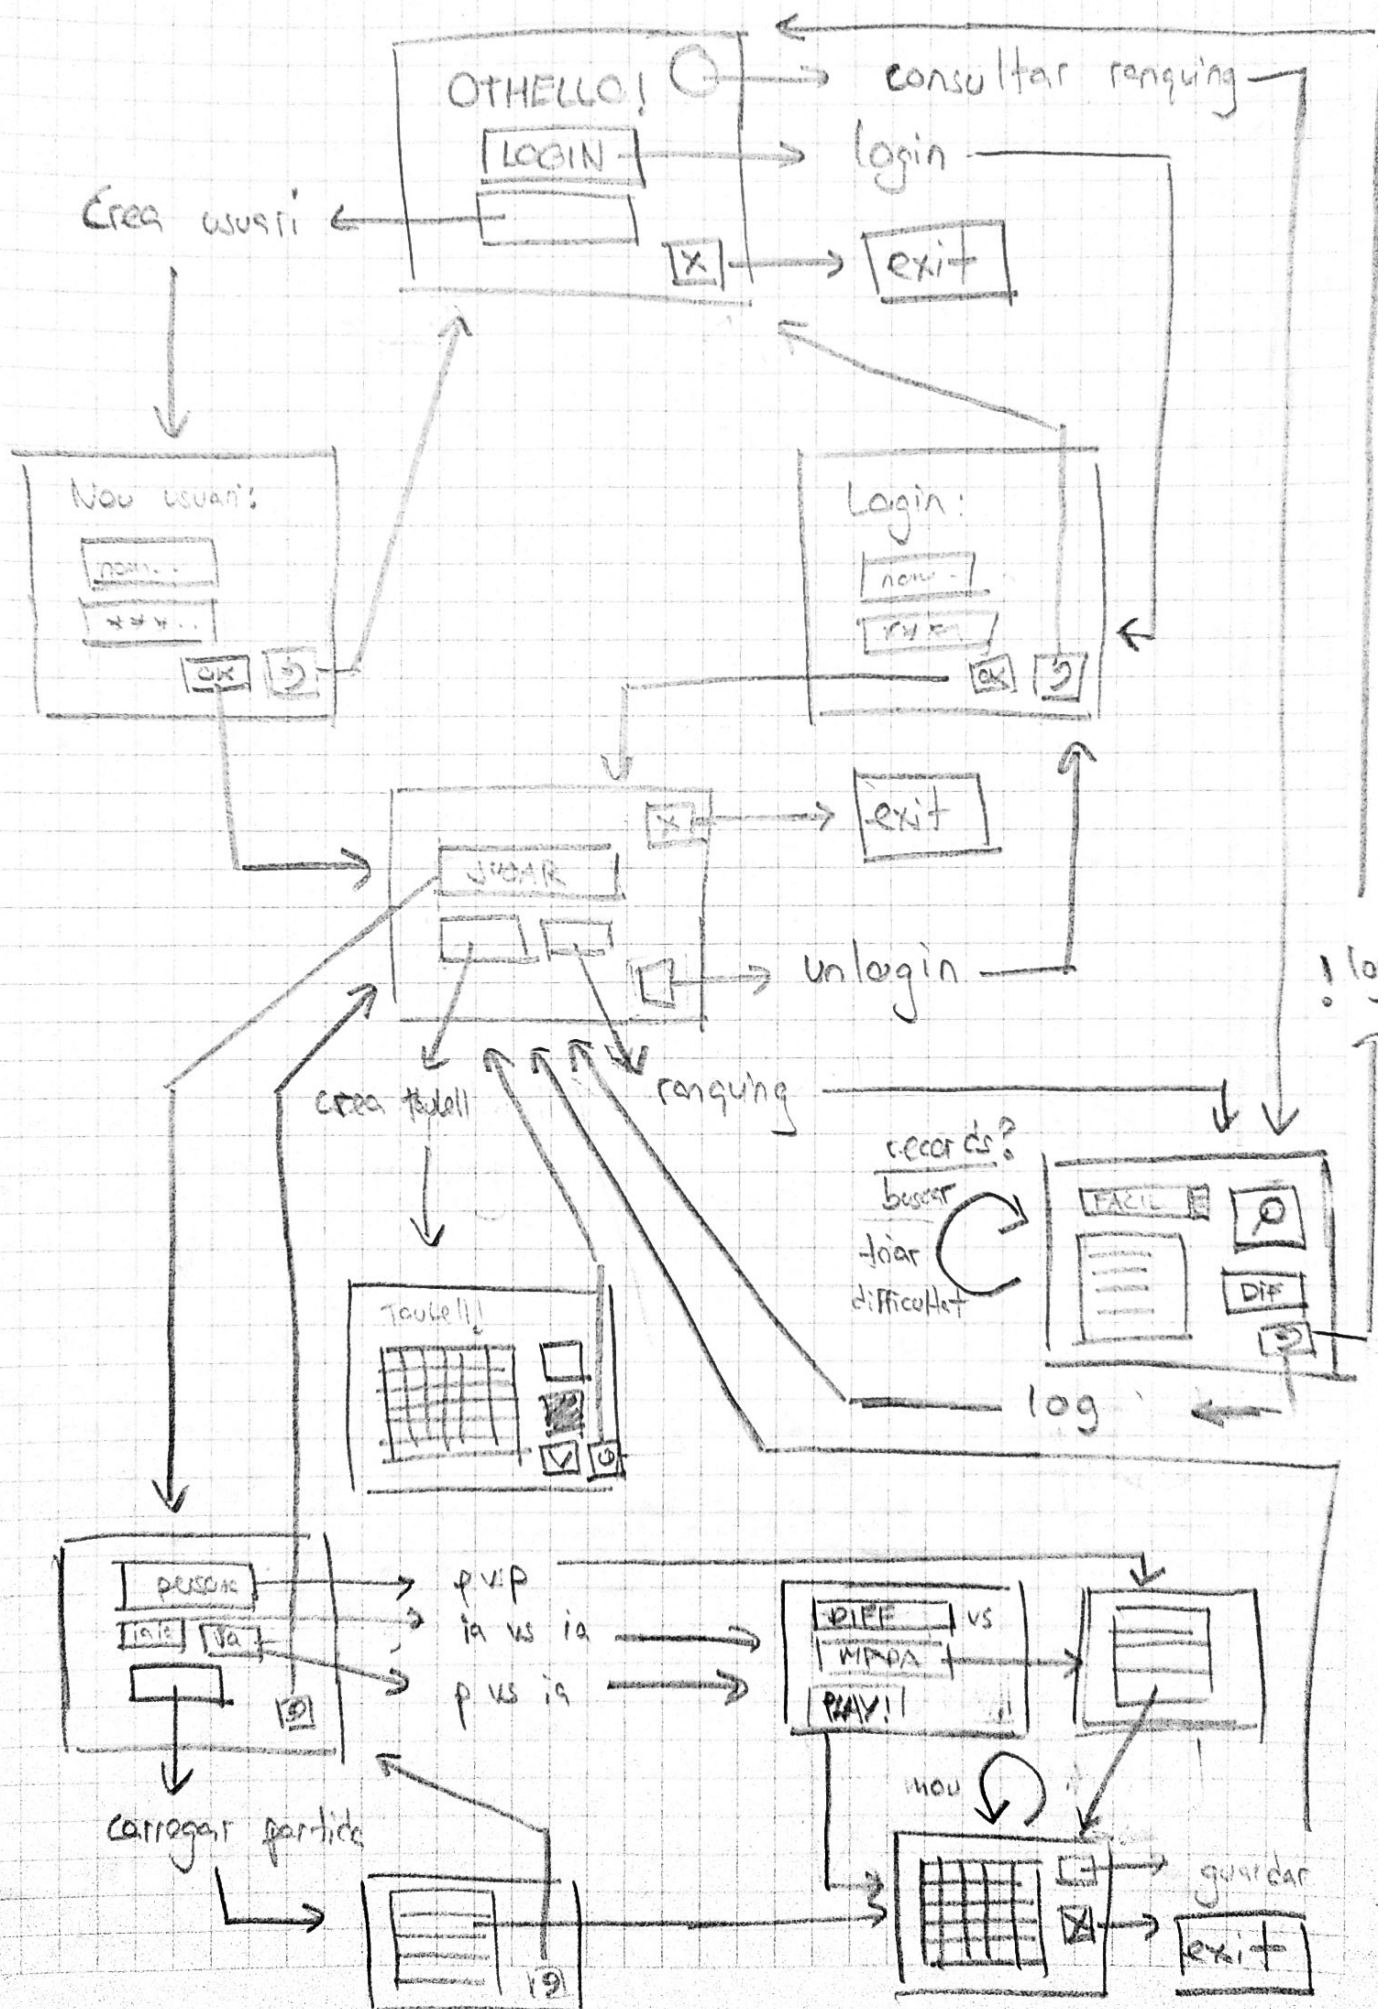 OTHELLO!
consultar ranquing
LOGIN
login
Crea usuari
X
exit
Nou usuari:
nom...
***..
OK
Login:
nom..
OK
X
exit
JUGAR
unlogin
crea taulell
ranquing
records?
buscar
triar
difficultat
FACIL
DIF
Taulell!
log
persona
p vs p
ia vs ia
p vs ia
DIFF
vs
MAPA
PLAY!
carregar partida
mou
guardar
X
exit